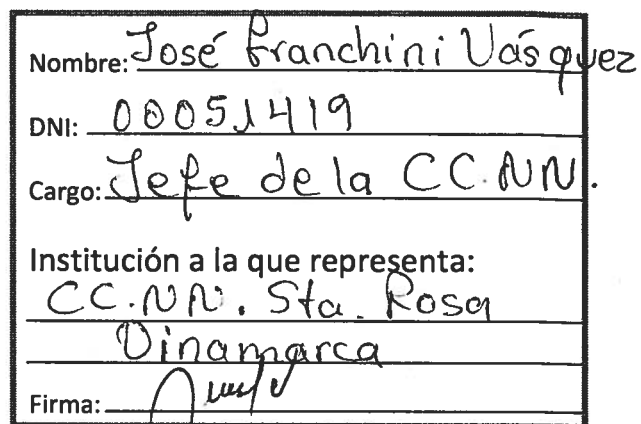 Nombre: José Franchini Vásquez
DNI: 00051419
Cargo: Jefe de la CC.NN.
Institución a la que representa:
CC.NN. Sta. Rosa
Dinamarca
Firma: